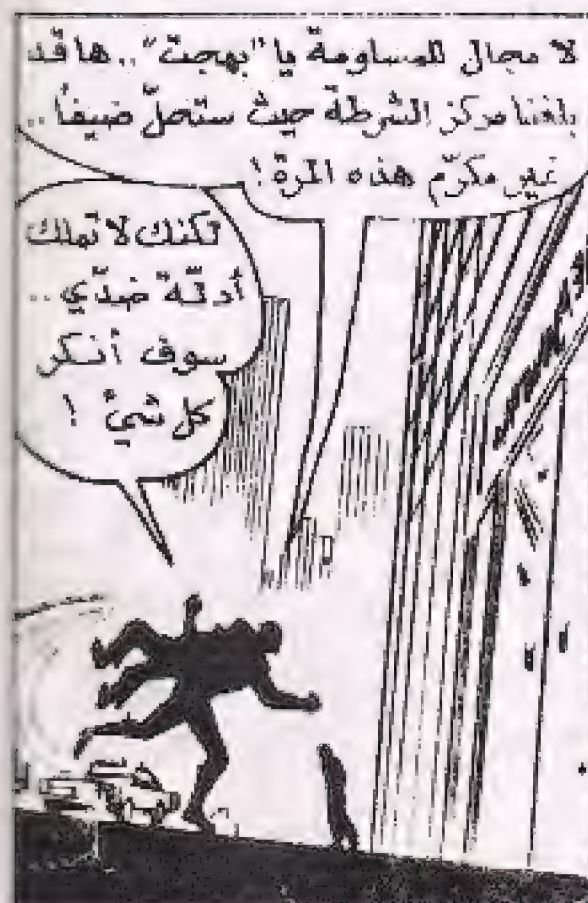 لا مجال للمساومة يا "بهجت".. ها قد
بلغنا مركز الشرطة حيث ستحلّ ضيفاً..
غير مكرّم هذه المرة!
لكنك لا تملك
أدلّة ضدّي..
سوف أنكر
كل شيء!